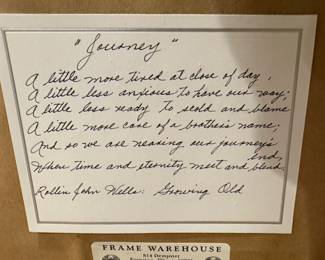 "Journey"
A little more tired at close of day,
A little less anxious to have our way;
A little less ready to scold and blame
A little more care of a brother's name;
And so we are nearing our journey's
end,
When time and eternity meet and blend.
Rollin John Wells: Growing Old
FRAME WAREHOUSE
814 Dempster